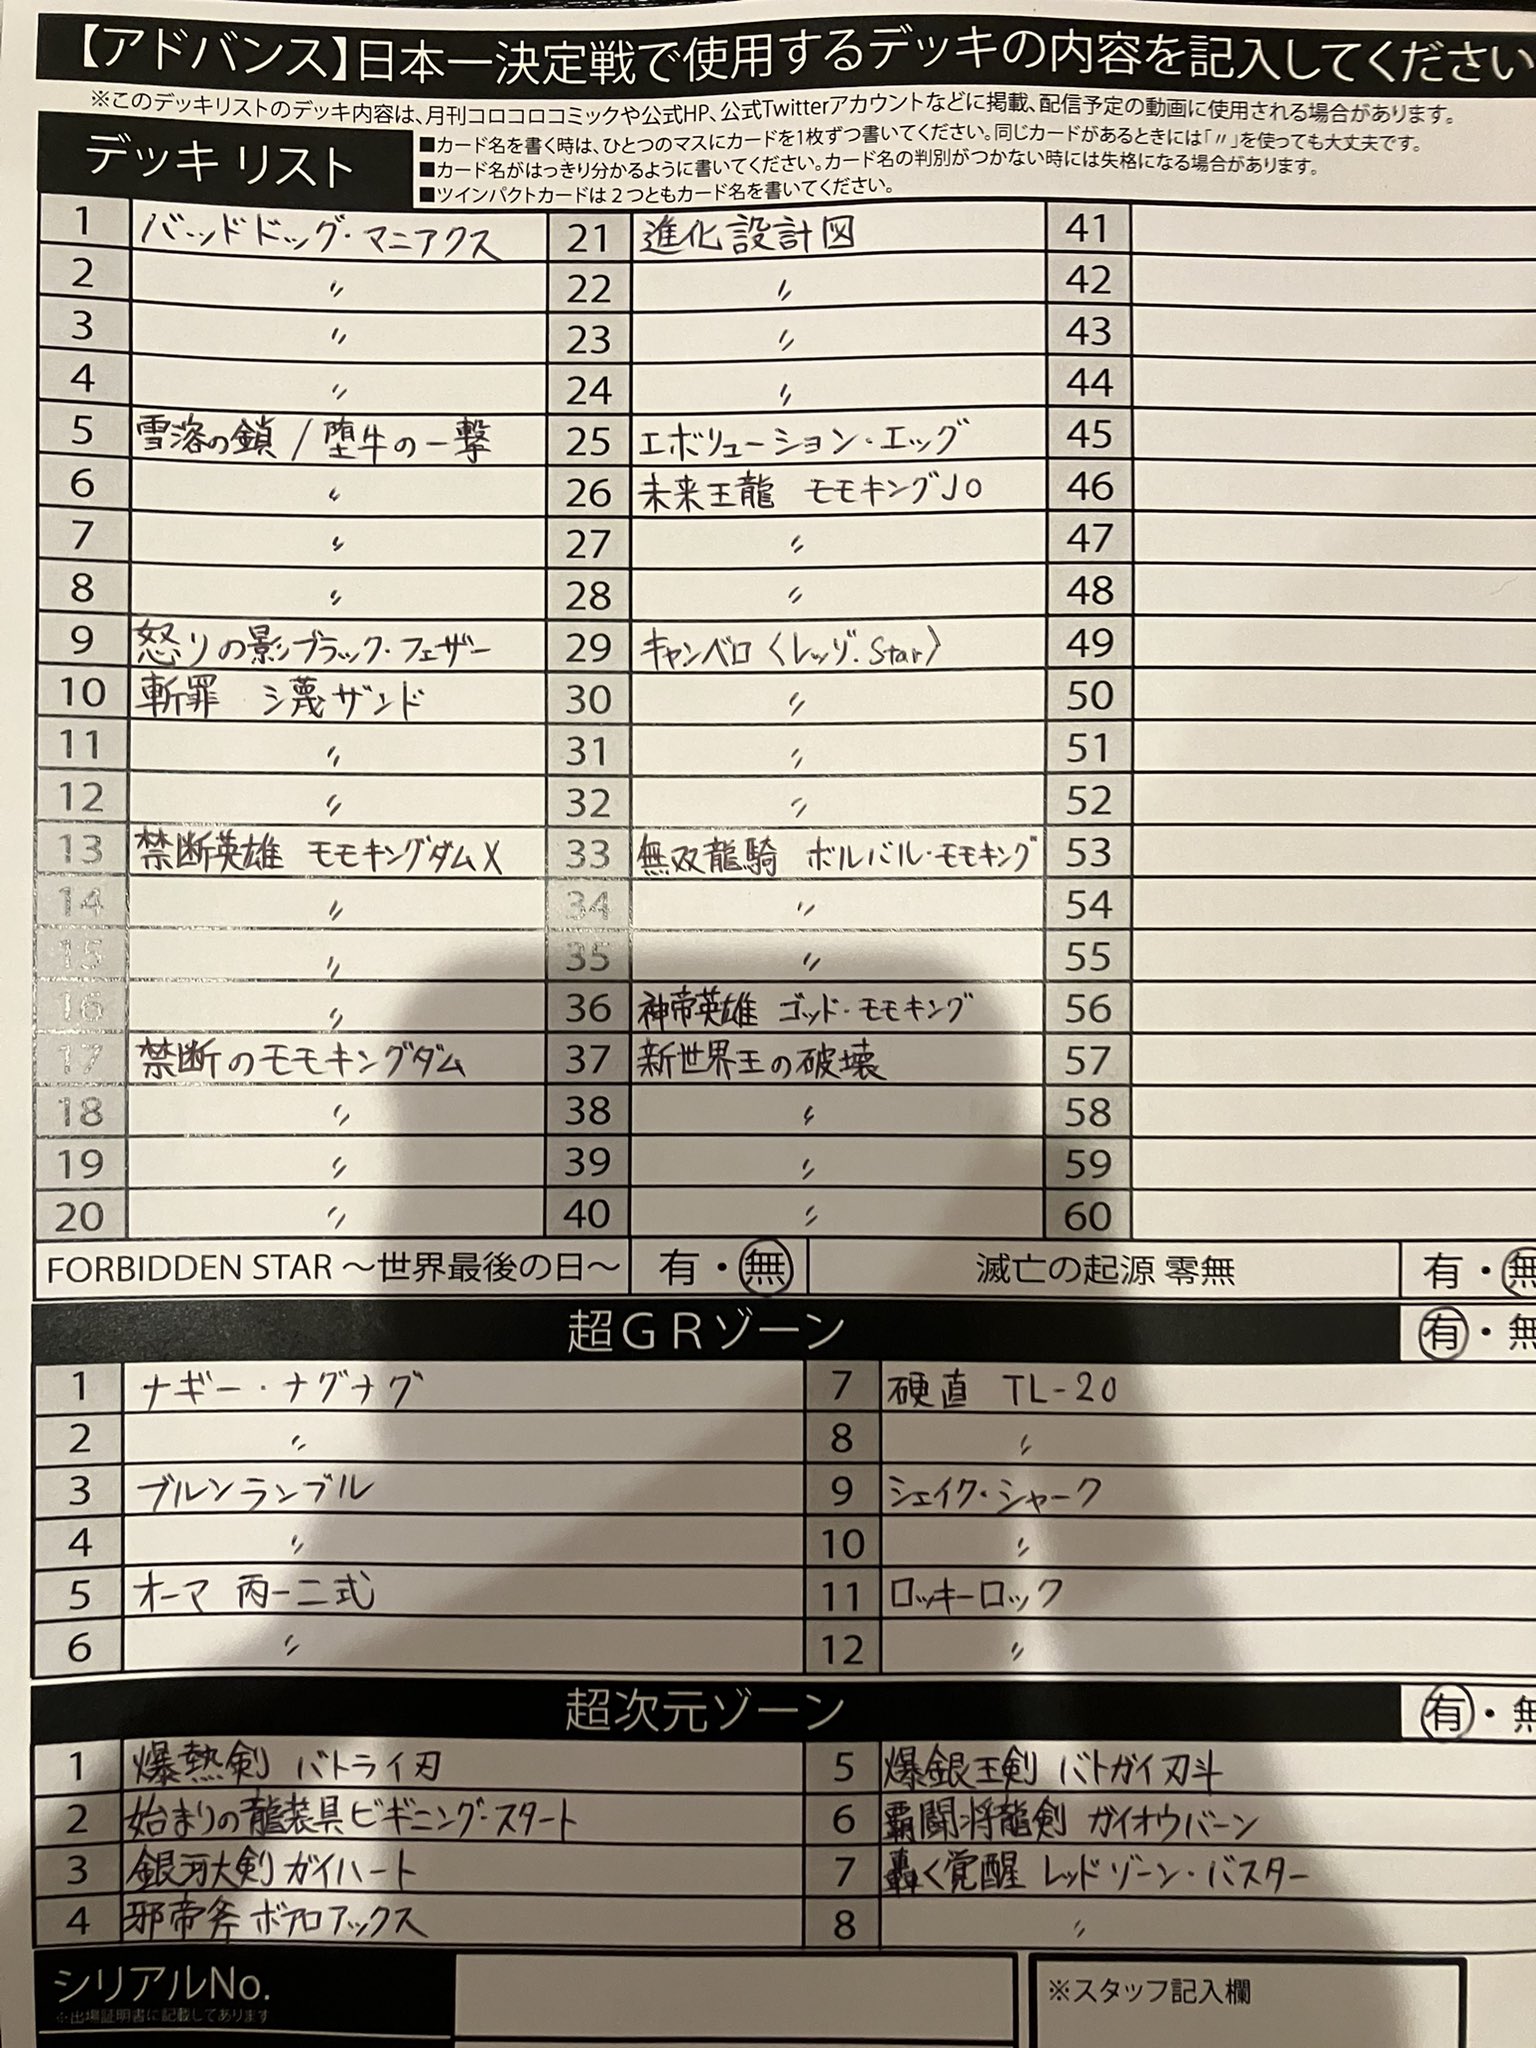 【アドバンス】日本一決定戦で使用するデッキの内容を記入してください
※このデッキリストのデッキ内容は、月刊コロコロコミックや公式HP、公式Twitterアカウントなどに掲載、配信予定の動画に使用される場合があります。
デッキ リスト
■カード名を書く時は、ひとつのマスにカードを1枚ずつ書いてください。同じカードがあるときには「〃」を使っても大丈夫です。
■カード名がはっきり分かるように書いてください。カード名の判別がつかない時には失格になる場合があります。
■ツインパクトカードは2つともカード名を書いてください。
1 バッドドッグ・マニアクス 21 進化設計図 41
2 〃 22 〃 42
3 〃 23 〃 43
4 〃 24 〃 44
5 雪溶の鎖/堕牛の一撃 25 エボリューション・エッグ 45
6 〃 26 未来王龍 モモキングJO 46
7 〃 27 〃 47
8 〃 28 〃 48
9 怒りの影ブラック・フェザー 29 キャンベロ〈レッゾ.Star〉 49
10 斬罪 シ蔑ザンド 30 〃 50
11 〃 31 〃 51
12 〃 32 〃 52
13 禁断英雄 モモキングダムX 33 無双龍騎 ボルバル・モモキング 53
14 〃 34 〃 54
15 〃 35 〃 55
16 〃 36 神帝英雄 ゴッド・モモキング 56
17 禁断のモモキングダム 37 新世界王の破壊 57
18 〃 38 〃 58
19 〃 39 〃 59
20 〃 40 〃 60
FORBIDDEN STAR～世界最後の日～ 有・無 滅亡の起源 零無 有・無
超GRゾーン 有・無
1 ナギー・ナグナグ 7 硬直 TL-20
2 〃 8 〃
3 ブルンランブル 9 シェイク・シャーク
4 〃 10 〃
5 オーマ 丙一二式 11 ロッキーロック
6 〃 12 〃
超次元ゾーン 有・無
1 爆熱剣 バトライ刃 5 爆銀王剣 バトガイ刃斗
2 始まりの龍装具 ビギニング・スタート 6 覇闘将龍剣 ガイオウバーン
3 銀河大剣 ガイハート 7 轟く覚醒 レッドゾーン・バスター
4 邪帝斧 ボアロアックス 8 〃
シリアルNo.
※出場証明書に記載してあります
※スタッフ記入欄